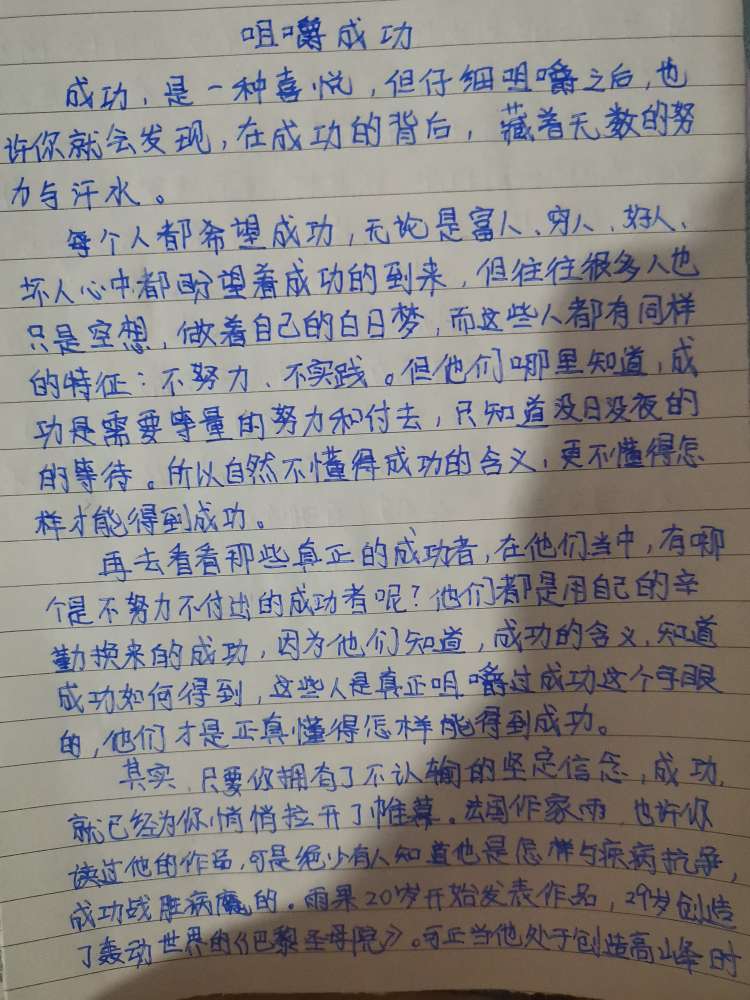 咀嚼成功
成功，是一种喜悦，但仔细咀嚼之后，也
许你就会发现，在成功的背后，藏着无数的努
力与汗水。
每个人都希望成功，无论是富人、穷人、好人、
坏人心中都盼望着成功的到来，但往往很多人也
只是空想，做着自己的白日梦，而这些人都有同样
的特征：不努力、不实践。但他们哪里知道，成
功是需要等量的努力和付去，只知道没日没夜的
的等待。所以自然不懂得成功的含义，更不懂得怎
样才能得到成功。
再去看看那些真正的成功者，在他们当中，有哪
个是不努力不付出的成功者呢？他们都是用自己的辛
勤换来的成功，因为他们知道，成功的含义，知道
成功如何得到，这些人是真正咀嚼过成功这个字眼
的，他们才是正真懂得怎样能得到成功。
其实，只要你拥有了不认输的坚定信念，成功，
就已经为你悄悄拉开了帷幕。法国作家雨 也许你
读过他的作品，可是绝少有人知道他是怎样与疾病抗争，
成功战胜病魔的。雨果20岁开始发表作品，29岁创造
了轰动世界的《巴黎圣母院》。可正当他处于创造高峰时